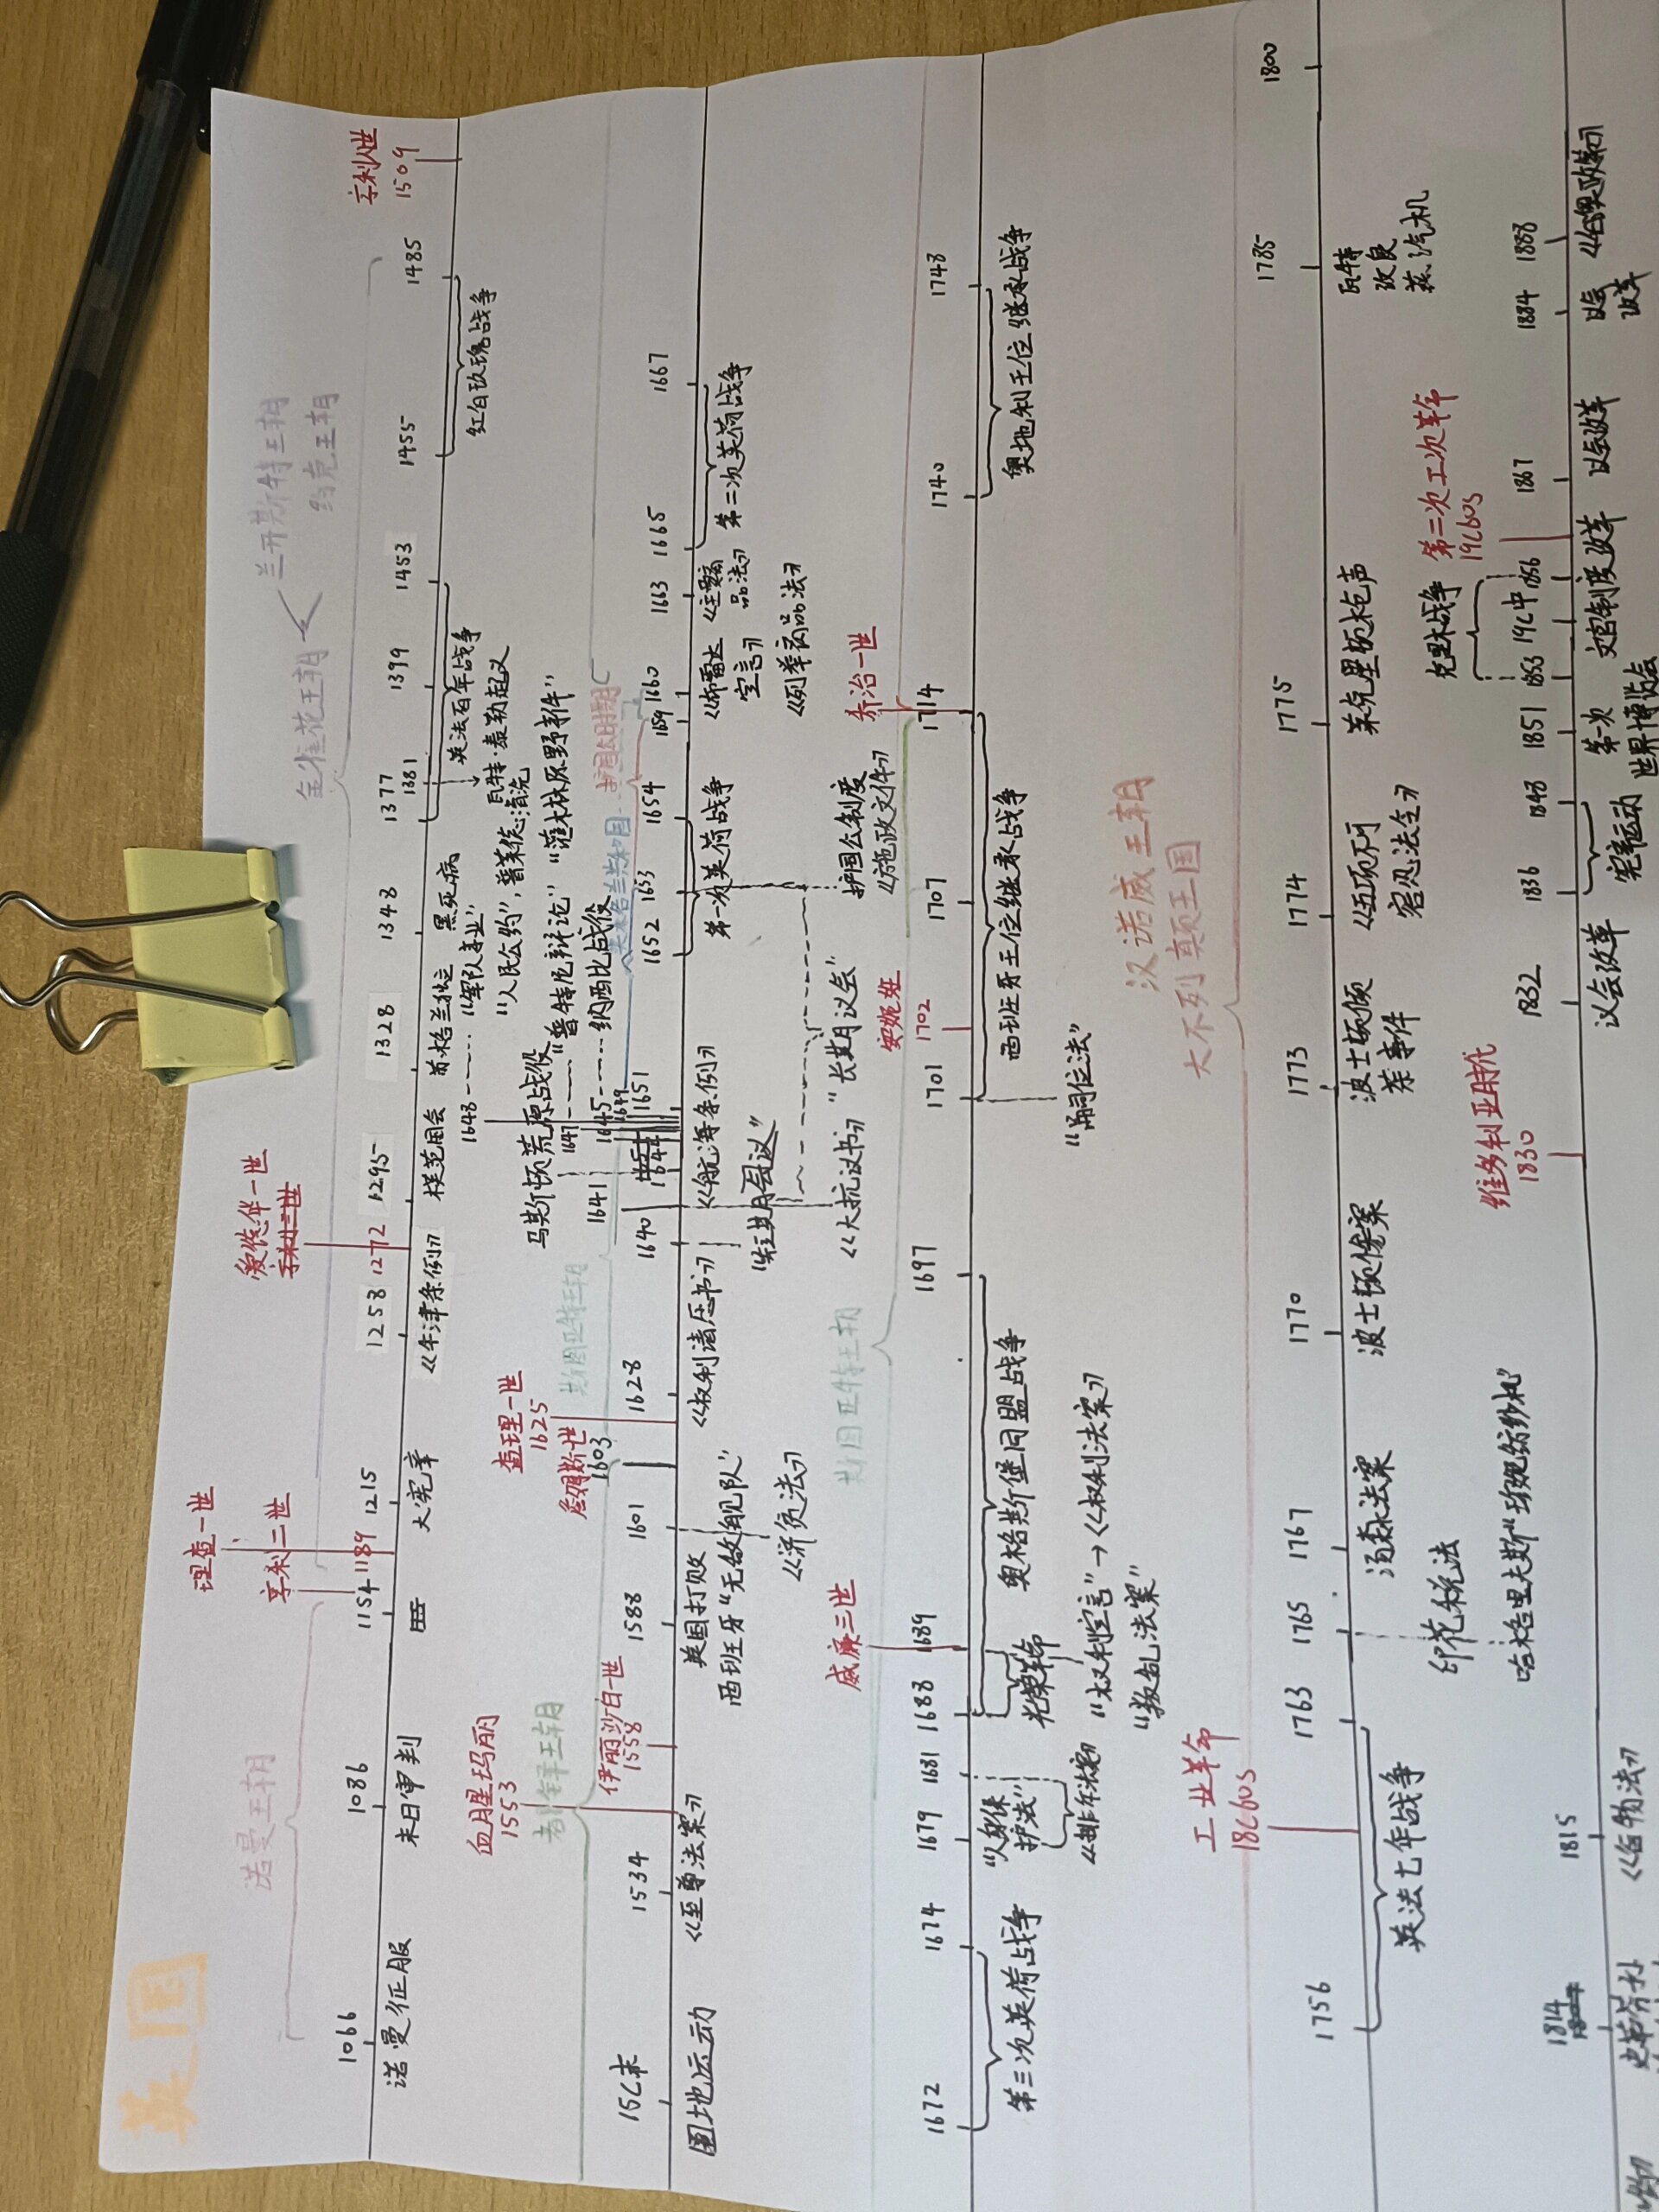 英国
诺曼王朝
金雀花王朝
兰开斯特王朝
约克王朝
理查一世
亨利二世
爱德华一世
亨利三世
亨利八世
1509
1066
1086
1154
1189
1215
1258
1272
1295
1328
1348
1377
1381
1399
1453
1455
1485
诺曼征服
末日审判
大宪章
《牛津条例》
模范国会
苏格兰独立
黑死病
英法百年战争
瓦特·泰勒起义
红白玫瑰战争
1648
"军队事业"
"人民公约", 普莱德清洗
马斯顿荒原战役
1647
"普特尼辩论"
"滙木林原野事件"
1645
纳西比战役
血腥玛丽
1553
都铎王朝
伊丽沙白一世
1558
詹姆斯一世
1603
查理一世
1625
斯图亚特王朝
英格兰共和国
护国公时期
15C末
1534
1588
1601
1628
1640
1641
1649
1651
1652
1653
1654
1659
1660
1663
1665
1667
圈地运动
《至尊法案》
英国打败
西班牙"无敌舰队"
《济贫法》
《权利请愿书》
"短期会议"
《航海条例》
《大抗议书》
"长期议会"
第一次英荷战争
护国公制度
《施政文件》
《布雷达
宣言》
《主要商
品法》
《列举商品法》
第二次英荷战争
斯图亚特王朝
威廉三世
安妮女王
1702
乔治一世
1672
1674
1679
1681
1688
1689
1697
1701
1707
1714
1740
1748
第三次英荷战争
"人身保
护法"
《排斥法案》
光荣革命
"权利宣言"→《权利法案》
"叛乱法案"
奥格斯堡同盟战争
"嗣位法"
西班牙王位继承战争
奥地利王位继承战争
汉诺威王朝
大不列颠王国
工业革命
18C60s
1756
1763
1765
1767
1770
1773
1774
1775
1785
1800
英法七年战争
印花税法
哈格里夫斯"珍妮纺纱机"
汤森法案
波士顿惨案
波士顿倾
茶事件
《五项不可
容忍法令》
莱克星顿枪声
瓦特
改良
蒸汽机
维多利亚时代
1830
第二次工次革命
19C60s
克里木战争
1814
1815
1832
1836
1848
1851
1853
19C中
1856
1867
1884
1888
史蒂芬孙
《谷物法》
议会改革
宪章运动
第一次
世界博览会
文官制度改革
议会改革
议会
改革